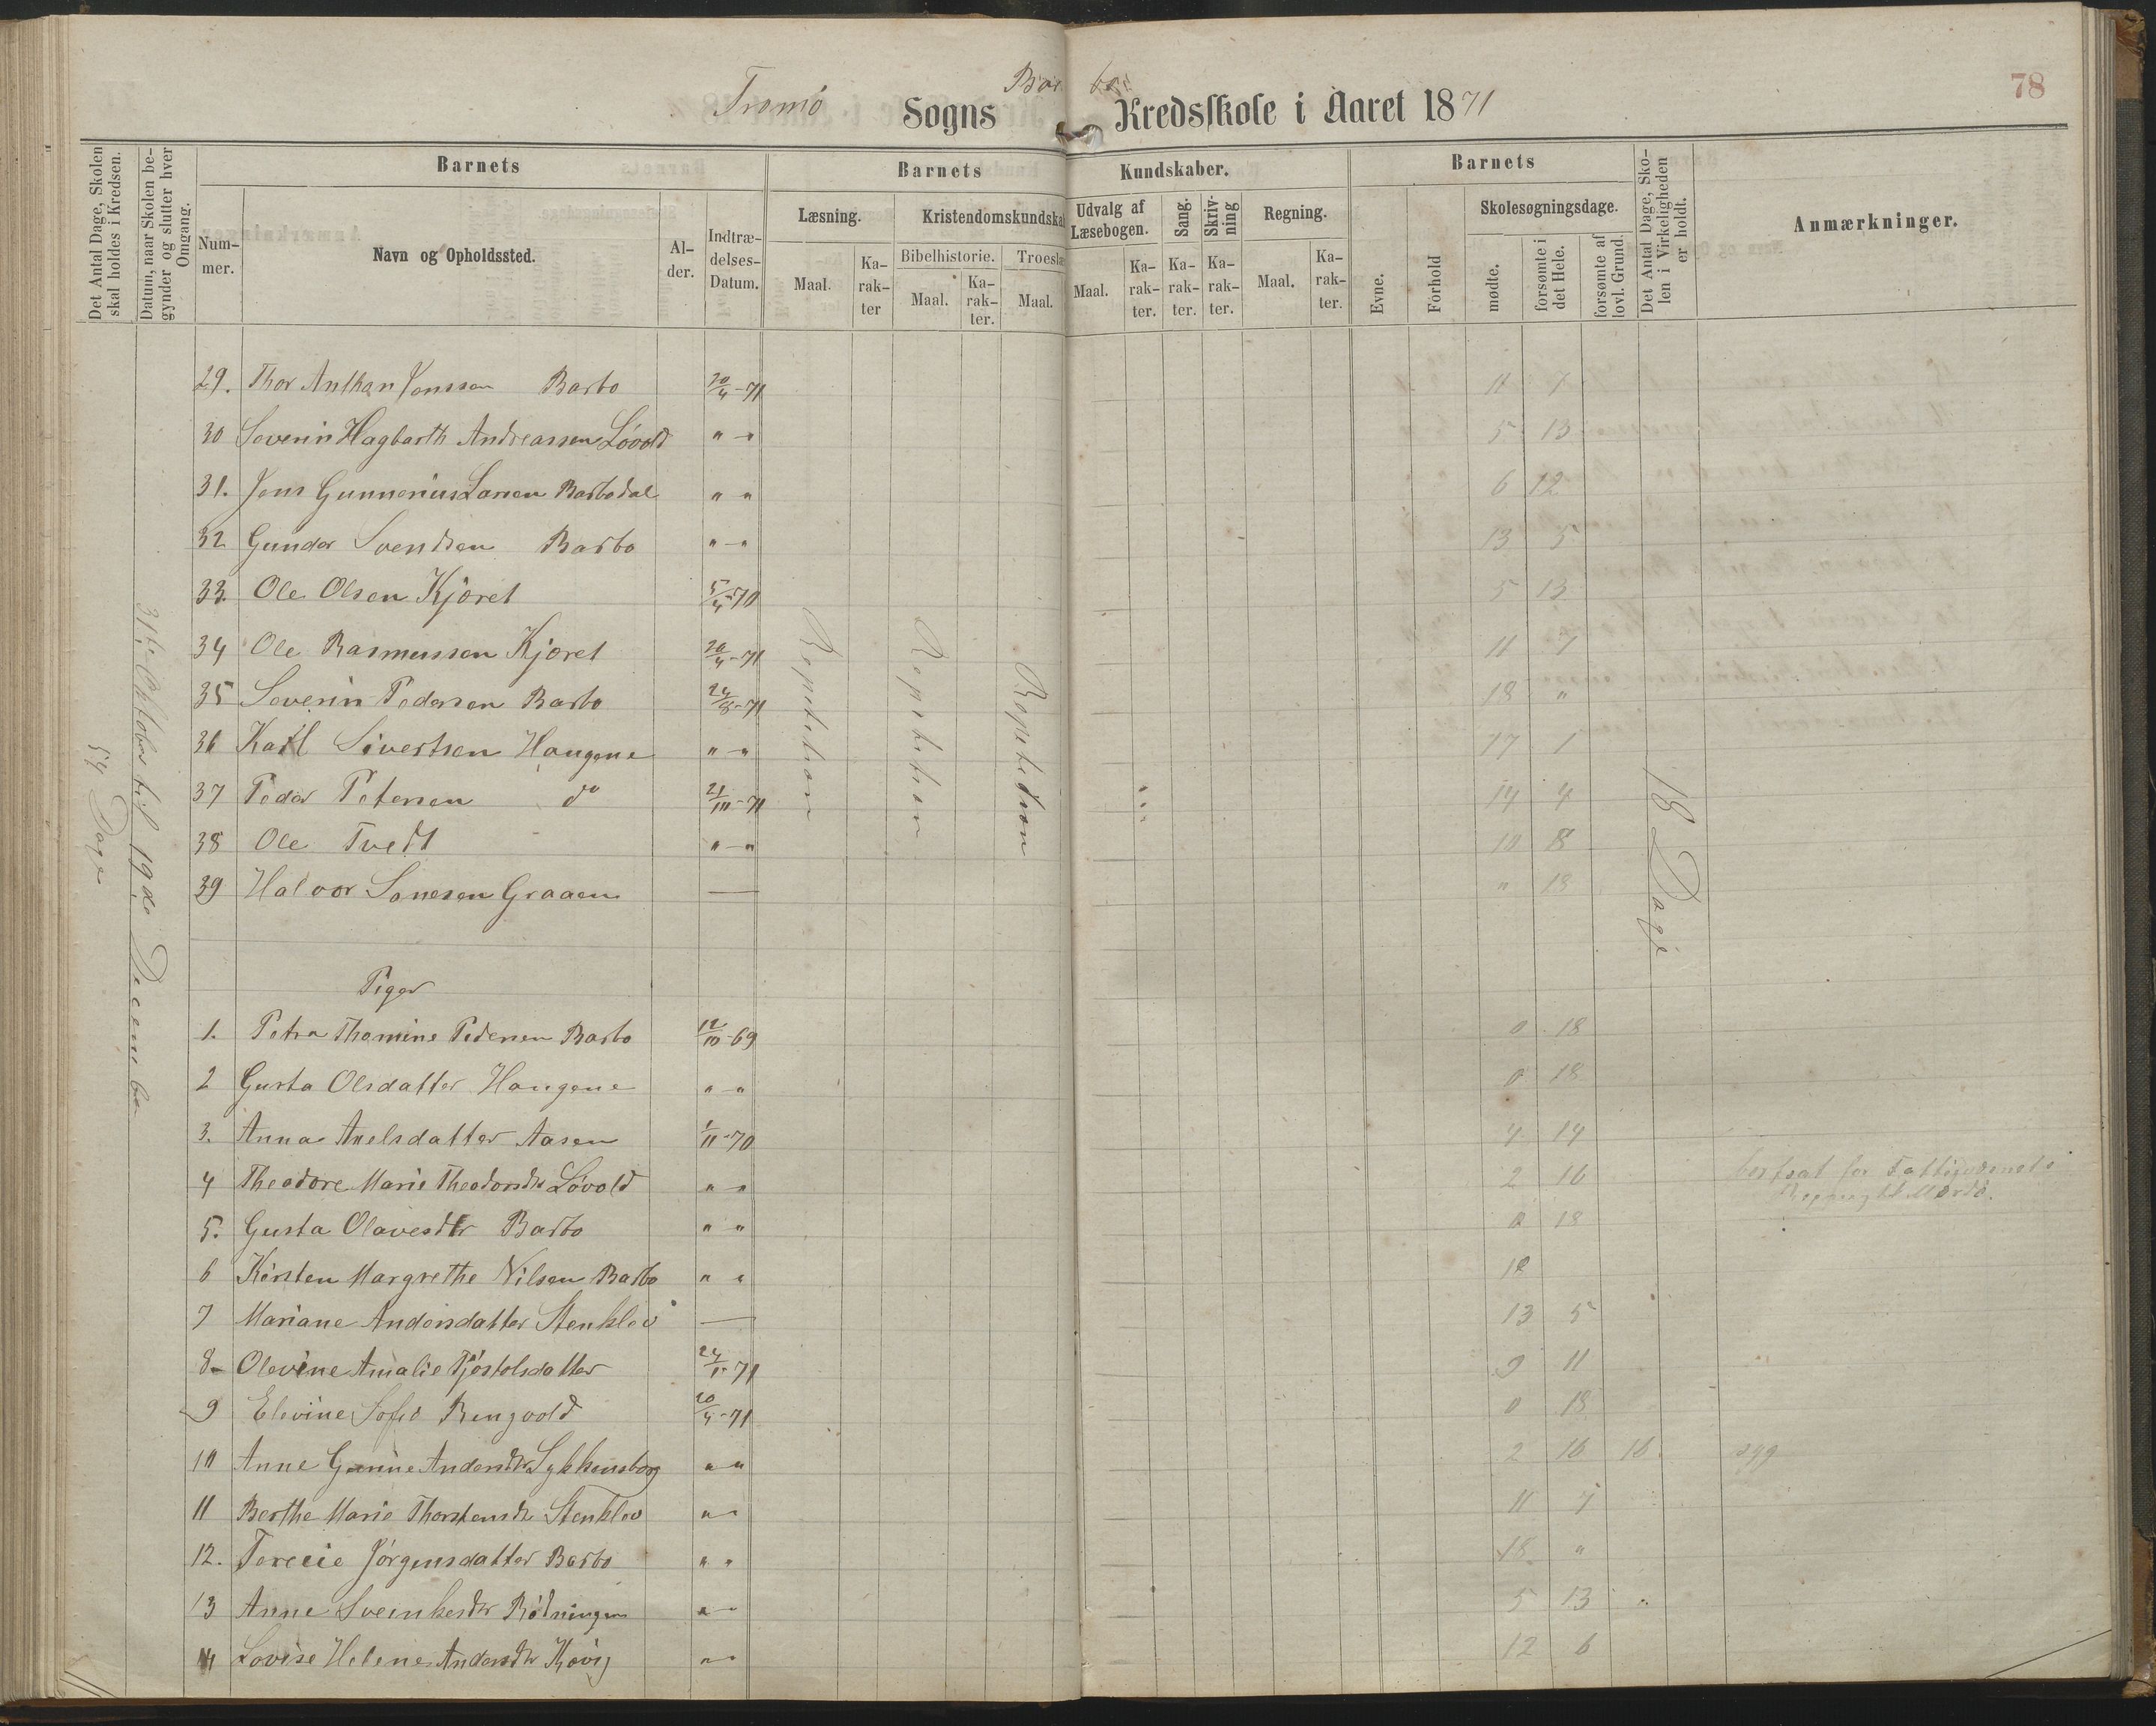 78
Tromø Sogns Barbo Kredsskole i Aaret 1871
Det Antal Dage, Skolen skal holdes i Kredsen.
Datum, naar Skolen begynder og slutter hver Omgang.
Barnets
Nummer.
Navn og Opholdssted.
Alder.
Indtrædelses-Datum.
Barnets Kundskaber.
Læsning.
Maal.
Karakter
Kristendomskundskab
Bibelhistorie.
Maal.
Karakter.
Troeslæ
Maal.
Udvalg af Læsebogen.
Maal.
Karakter.
Sang.
Karakter.
Skrivning
Karakter.
Regning.
Maal.
Karakter.
Barnets
Evne.
Forhold
Skolesøgningsdage.
mødte.
forsømte i det Hele.
forsømte af lovl. Grund.
Det Antal Dage, Skolen i Virkeligheden er holdt.
Anmærkninger.
54 Dage
31te Oktober til 19de December
Repetition
Repetition
Repetition
18 Dage
29. Thor Anthan Jonsson Barbo 20/4-71 11 7
30 Severin Hagbarth Andreassen Løvold " " 5 13
31. Jens Gunnerius Larsen Barbodal " " 6 12
32 Gunder Svendsen Barbo " " 13 5
33. Ole Olsen Kjøret 5/4-70 5 13
34 Ole Rasmussen Kjøret 20/4-71 11 7
35 Severin Pedersen Barbo 24/8-71 18 "
36 Karl Sivertsen Haugene " " 17 1
37 Peder Petersen do 21/10-71 14 4
38 Ole Tvedt " " 10 8
39 Halvor Sønesen Graaen — " 18
Piger
1. Petra Thomine Pedersen Barbo 12/10-69 0 18
2 Gusta Olsdatter Haugene " " 0 18
3. Anna Axelsdatter Aasen 1/11-70 4 14
4 Theodore Marie Theodorsdtr Løvold " " 2 16 bortsat for Fattigvæsnets
5. Gusta Olavesdtr Barbo " " 0 18
6 Kirsten Margrethe Nilsen Barbo " " 18
7 Mariane Andersdatter Stenklev — 13 5
8 Olevine Amalie Tjøstolsdatter 24/1-71 9 11
9 Elevine Sofie Rengvold 20/4-71 0 18
10 Anne Gunine Andersdtr Lykkensborg " " 2 16 16 syg
11 Berthe Marie Thorstensdtr Stenklev " " 11 7
12. Terecie Jørgensdatter Barbo " " 18 "
13 Anne Sveinkesdtr Rødningen " " 5 13
14 Lovise Helene Andersdtr Køvig " " 12 6